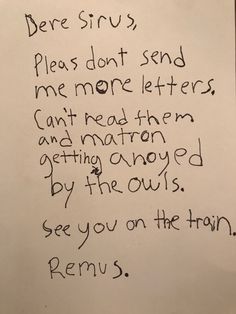 Dere Sirus,
Pleas dont send
me more letters.
Can't read them
and matron
getting anoyed
by the owls.
See you on the train.
Remus.